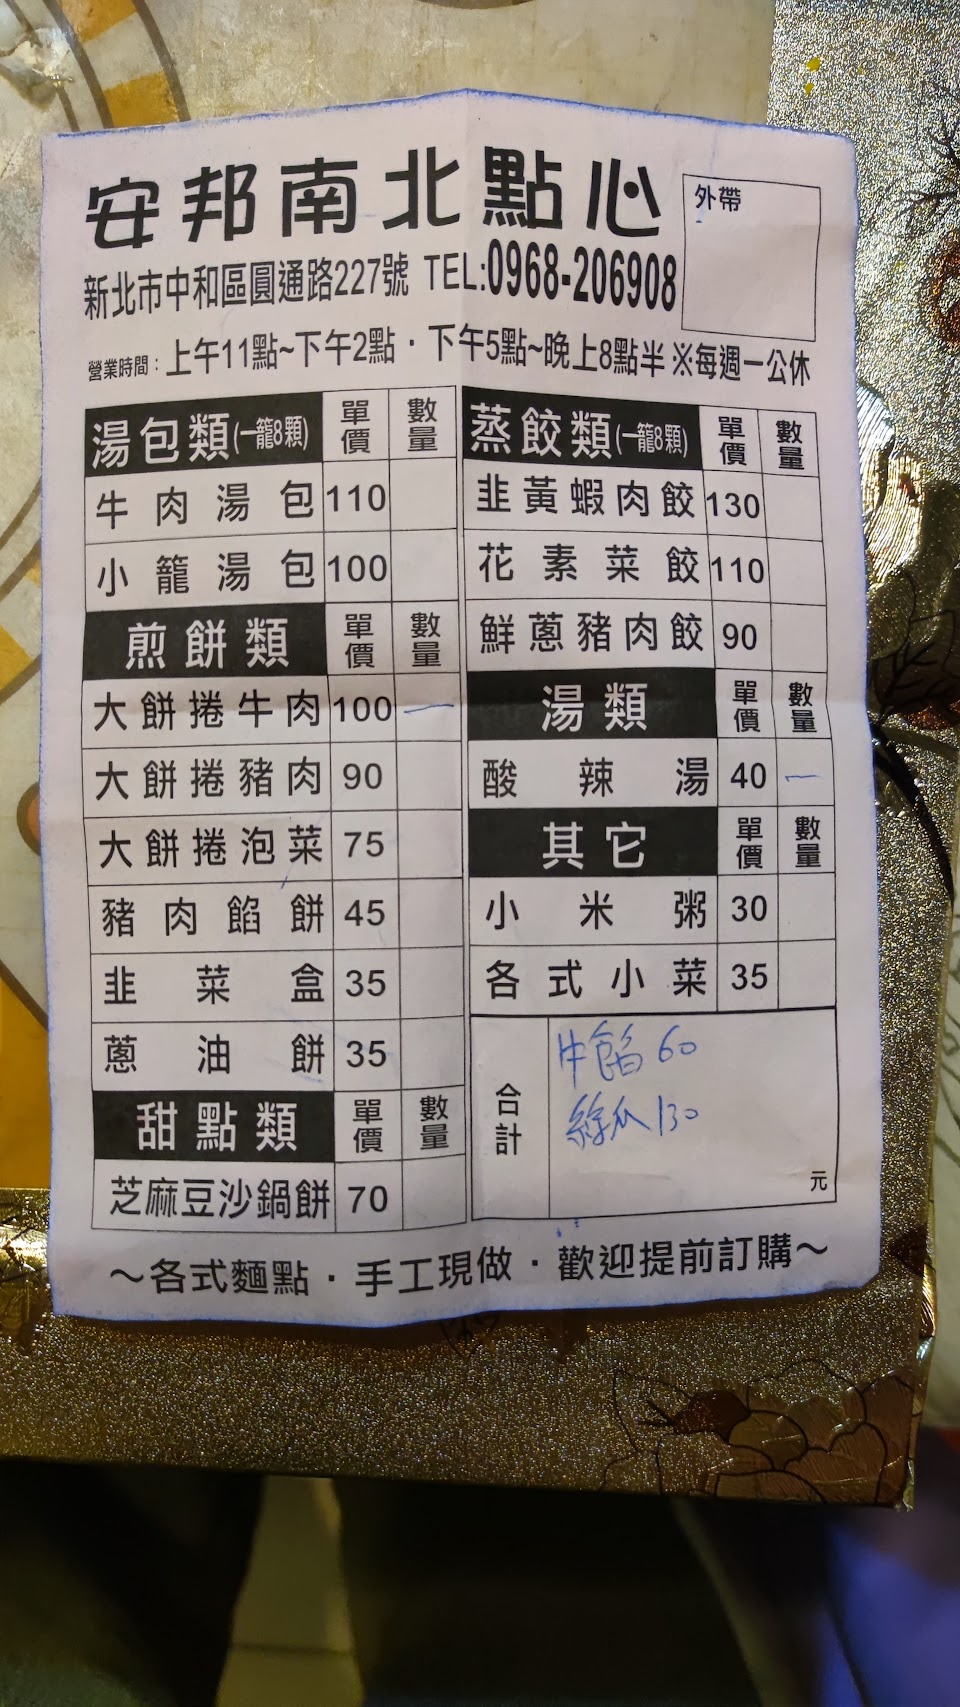 安邦南北點心
外帶
新北市中和區圓通路227號 TEL:0968-206908
營業時間：上午11點~下午2點．下午5點~晚上8點半 ※每週一公休
湯包類(一籠8顆) 單價 數量
牛肉湯包 110
小籠湯包 100
煎餅類 單價 數量
大餅捲牛肉 100 一
大餅捲豬肉 90
大餅捲泡菜 75
豬肉餡餅 45
韭菜盒 35
蔥油餅 35
甜點類 單價 數量
芝麻豆沙鍋餅 70
蒸餃類(一籠8顆) 單價 數量
韭黃蝦肉餃 130
花素菜餃 110
鮮蔥豬肉餃 90
湯類 單價 數量
酸辣湯 40 一
其它 單價 數量
小米粥 30
各式小菜 35
合計
牛餡 60
絲瓜 130
元
～各式麵點．手工現做．歡迎提前訂購～